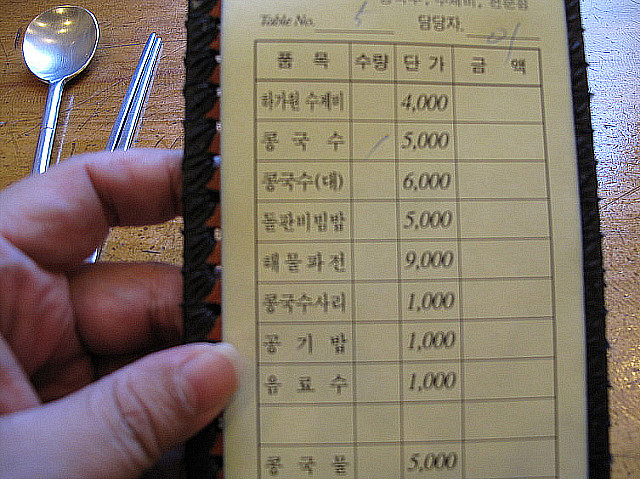 Table No. 담당자.
품 목 수량 단 가 금 액
하가원 수제비 4,000
콩 국 수 5,000
콩국수(대) 6,000
돌판비빔밥 5,000
해 물 파 전 9,000
콩국수사리 1,000
공 기 밥 1,000
음 료 수 1,000
콩 국 물 5,000